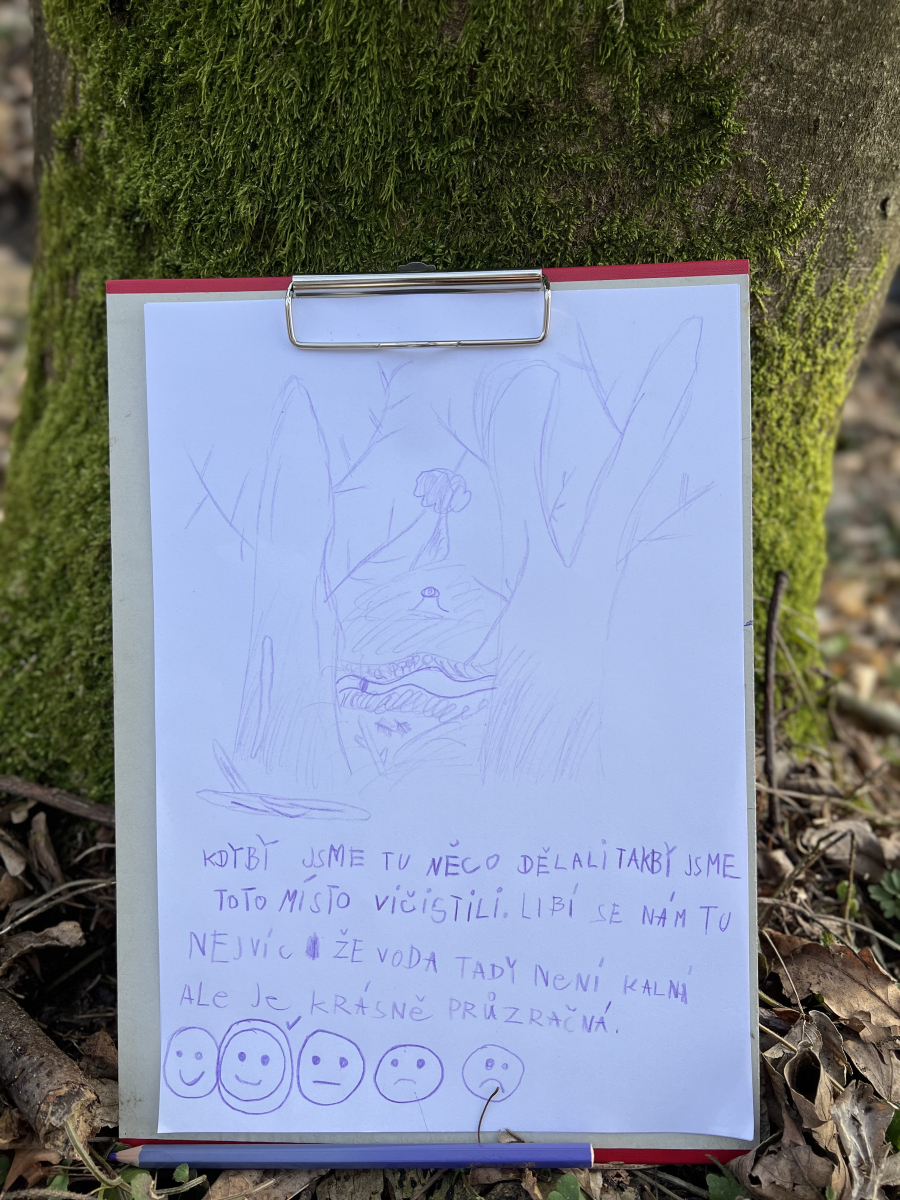 KDYBY JSME TU NĚCO DĚLALI TAKBY JSME
TOTO MÍSTO VÍČISTILI. LIBÍ SE NÁM TU
NEJVÍC ŽE VODA TADY NENÍ KALNÁ
ALE JE KRÁSNĚ PRŮZRAČNÁ.